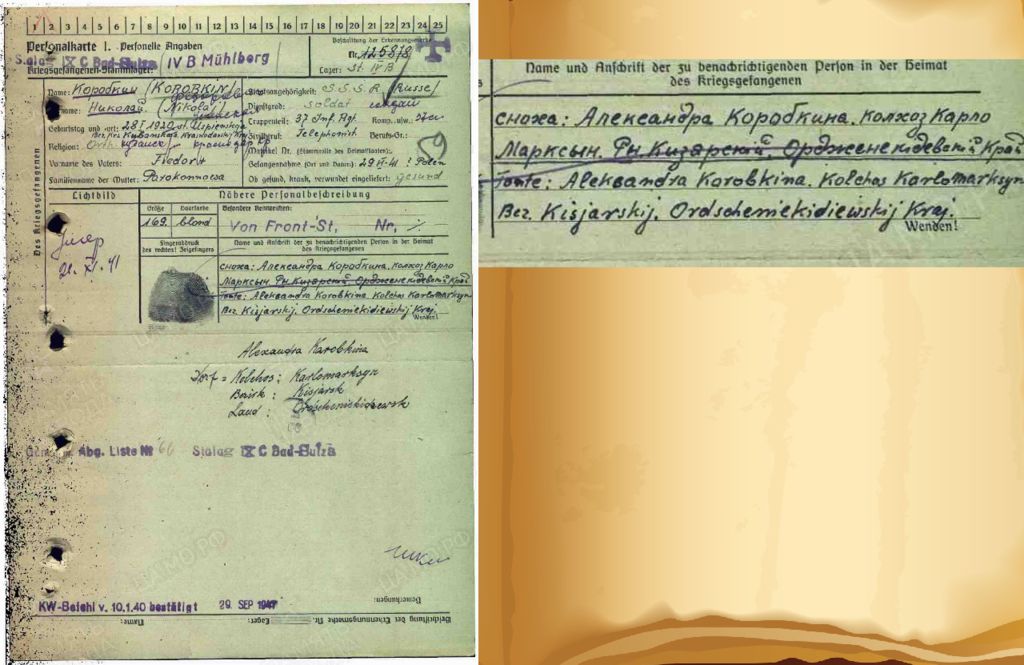 1 2 3 4 5 6 7 8 9 10 11 12 13 14 15 16 17 18 19 20 21 22 23 24 25
Personalkarte I. Personelle Angaben
Beschriftung der Erkennungsmarke
Nr. 125878
Stalag IX C Bad-Sulza IV B Mühlberg
Kriegsgefangenen-Stammlager:
Lager: St. IV B
Des Kriegsgefangenen
Name: Коробкин (KOROBKIN)
Staatsangehörigkeit: S.S.S.R. (Russe)
Vorname: Николай (Nikolai)
Dienstgrad: Soldat
Geburtstag und -ort: 28.I 1920
Truppenteil: 37 Inf. Rgt. Komp. usw.
Zivilberuf: Telephonist Berufs-Gr.:
Religion: Orth.
Matrikel Nr. (Stammrolle des Heimatstaates):
Vorname des Vaters: Fiodor
Gefangennahme (Ort und Datum): Polen
Familienname der Mutter: Parokonnowa
Ob gesund, krank, verwundet eingeliefert: gesund
Lichtbild
Nähere Personalbeschreibung
Größe Haarfarbe Besondere Kennzeichen:
169. blond Von Front-St, Nr, ./.
21. XI. 41
Fingerabdruck des rechten! Zeigefingers
Name und Anschrift der zu benachrichtigenden Person in der Heimat
des Kriegsgefangenen
сноха: Александра Коробкина. Колхоз Карло
Марксын. Рн. Кизарский. Ордженекидевский Край
Tante: Aleksandra Korobkina. Kolchos Karlomarksyn
Bez. Kisjarskij. Ordscheniekidiewskij Kraj.
Wenden!
Alexandra Karobkina
Dorf = Kolchos: Karlomarksyn
Bezirk: Kisjarsk
Land: Ordscheniekidzewsk
Abg. Liste № 66 Stalag IX C Bad-Sulza
KW-Befehl v. 10.1.40 bestätigt 29. SEP 1941
Bemerkungen:
Beschriftung der Erkennungsmarke Nr. Lager: Name:
Name und Anschrift der zu benachrichtigenden Person in der Heimat
des Kriegsgefangenen
сноха: Александра Коробкина. Колхоз Карло
Марксын. Рн. Кизарский. Ордженекидевский Край
Tante: Aleksandra Korobkina. Kolchos Karlomarksyn
Bez. Kisjarskij. Ordscheniekidiewskij Kraj.
Wenden!